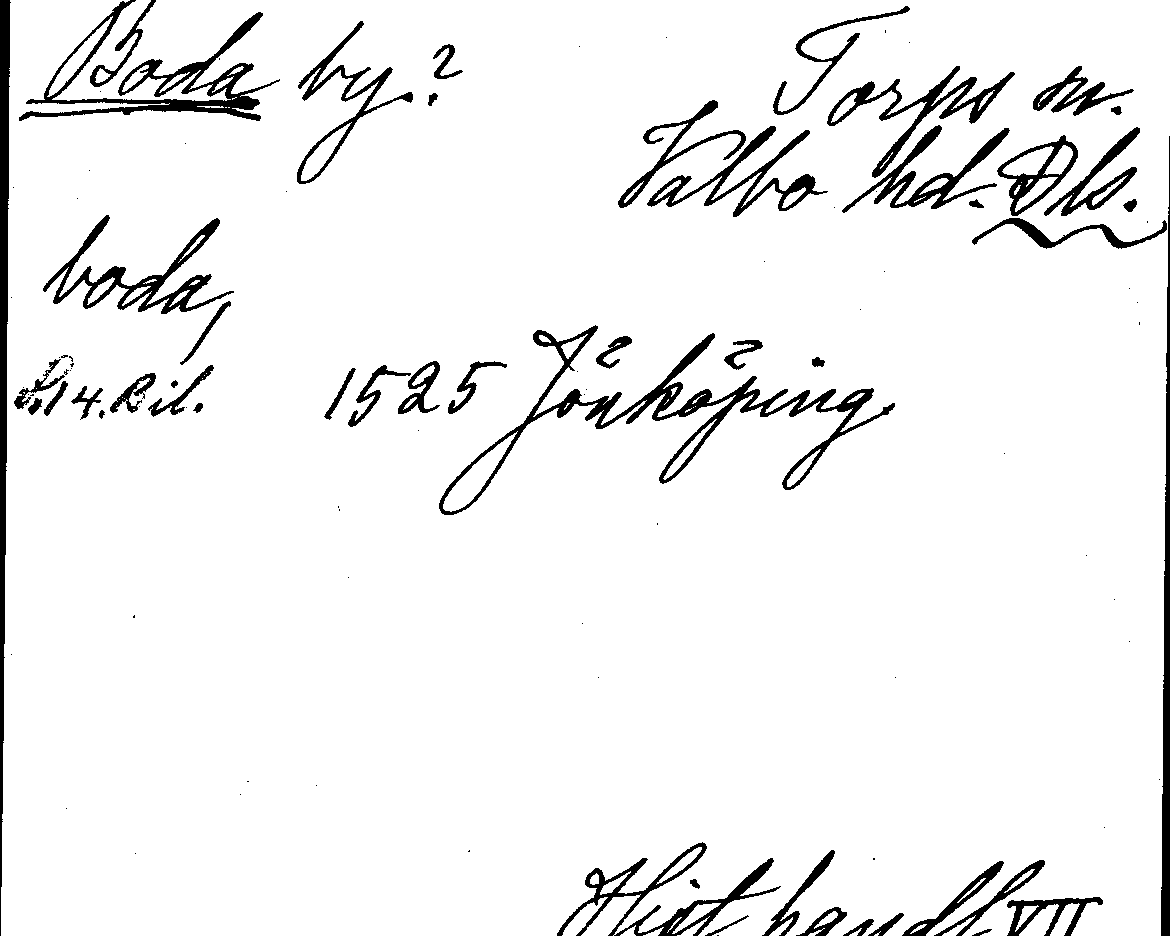 Boda by.?
Torps sn.
Valbo hd. Dls.
boda,
S.14. Bil. 1525 Jönköping.
Hist. handl. VII